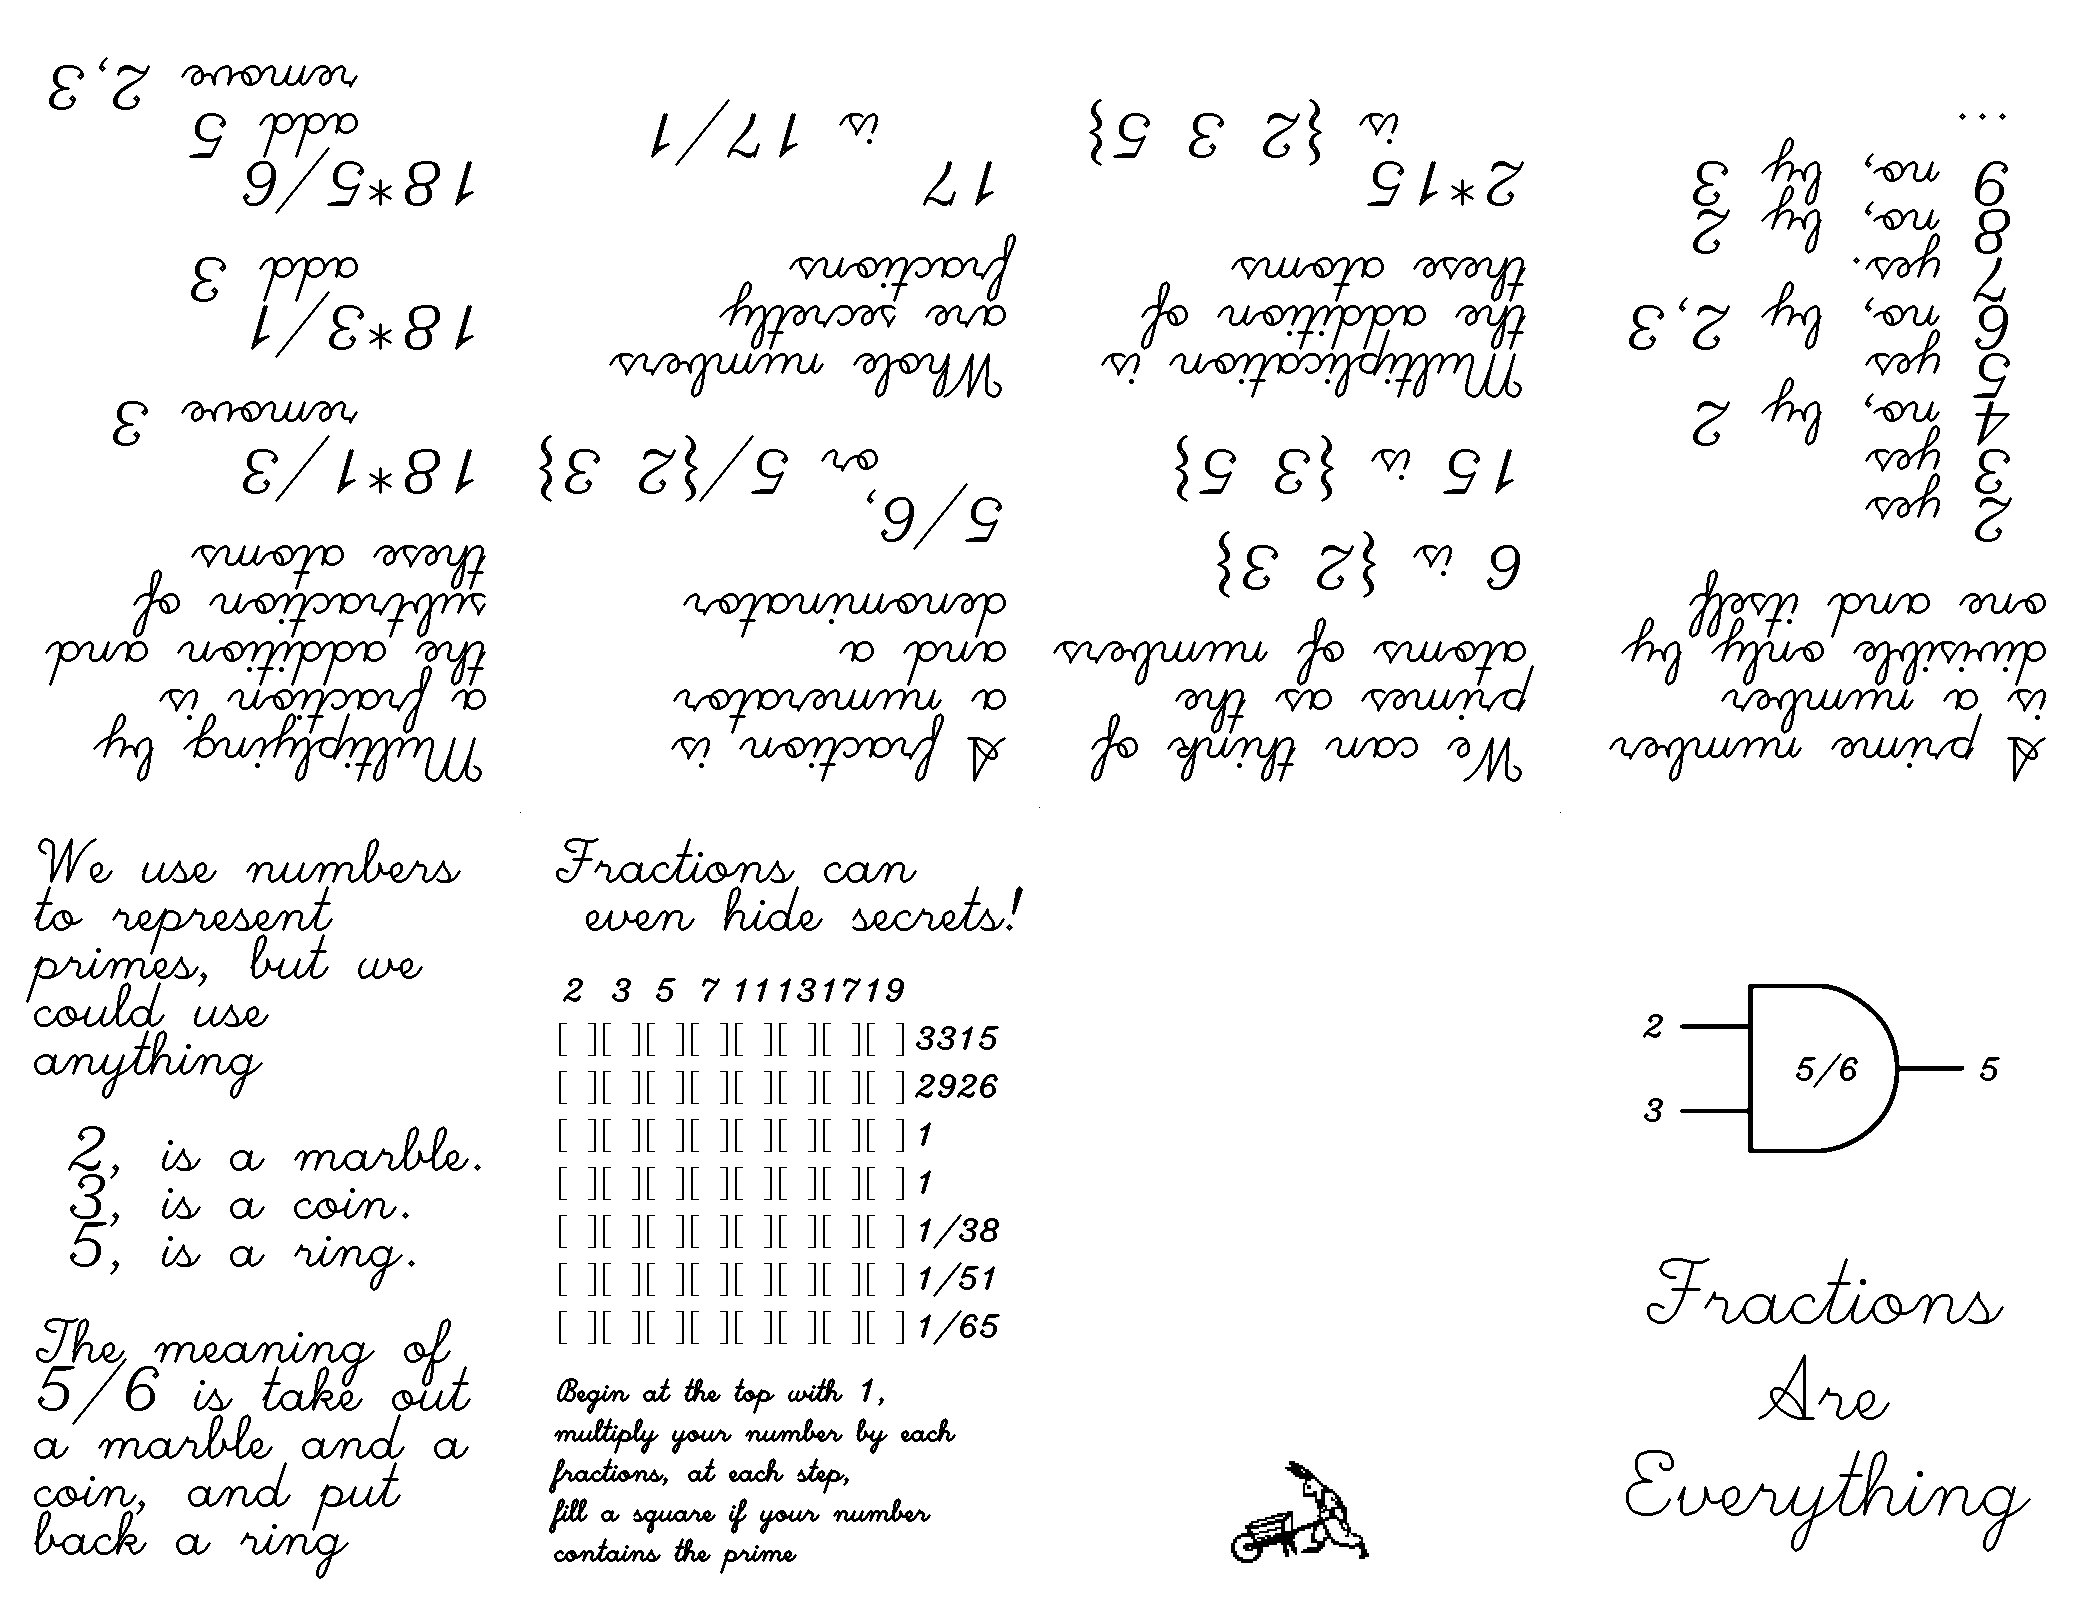 Fractions
Are
Everything
2
3
5/6
5
A prime number
is a number
divisible only by
one and itself
2 yes
3 yes
4 no, by 2
5 yes
6 no, by 2,3
7 yes.
8 no, by 2
9 no, by 3
...
We can think of
primes as the
atoms of numbers
6 is {2 3}
15 is {3 5}
Multiplication is
the addition of
these atoms
2*15
is {2 3 5}
A fraction is
a numerator
and a
denominator
5/6,
or 5/{2 3}
Whole numbers
are secretly
fractions
17
is 17/1
Multiplying by
a fraction is
the addition and
subtraction of
these atoms
18*1/3
remove 3
18*3/1
add 3
18*5/6
add 5
remove 2,3
We use numbers
to represent
primes, but we
could use
anything
2, is a marble.
3, is a coin.
5, is a ring.
The meaning of
5/6 is take out
a marble and a
coin, and put
back a ring
Fractions can
even hide secrets!
2 3 5 7 11 13 17 19
[ ][ ][ ][ ][ ][ ][ ][ ] 3315
[ ][ ][ ][ ][ ][ ][ ][ ] 2926
[ ][ ][ ][ ][ ][ ][ ][ ] 1
[ ][ ][ ][ ][ ][ ][ ][ ] 1
[ ][ ][ ][ ][ ][ ][ ][ ] 1/38
[ ][ ][ ][ ][ ][ ][ ][ ] 1/51
[ ][ ][ ][ ][ ][ ][ ][ ] 1/65
Begin at the top with 1,
multiply your number by each
fractions, at each step,
fill a square if your number
contains the prime